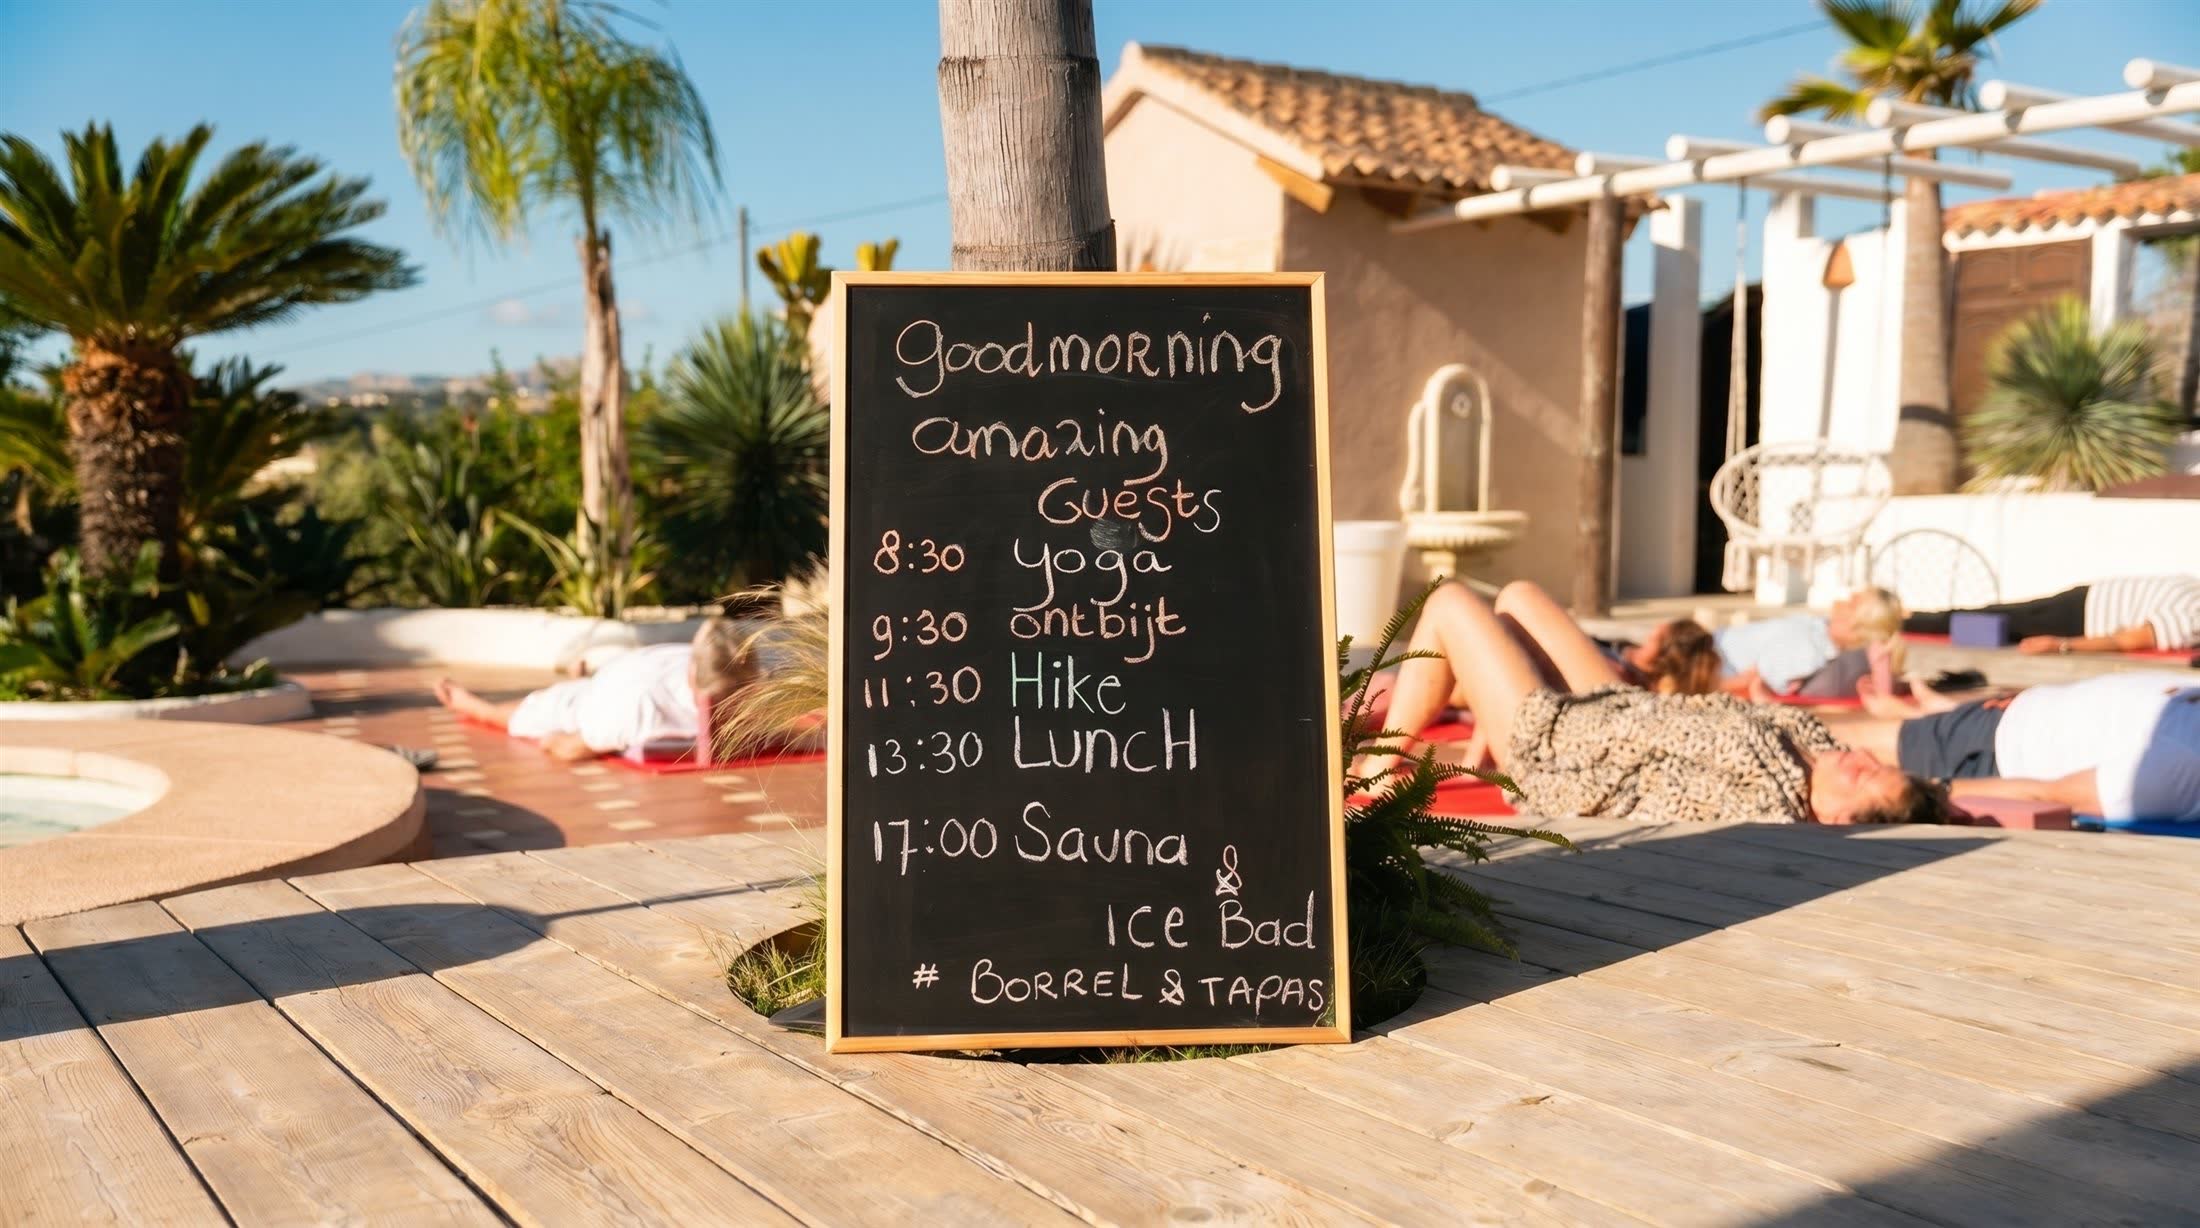 Goodmorning
amazing
Guests
8:30 yoga
9:30 ontbijt
11:30 Hike
13:30 Lunch
17:00 Sauna
&
ICE Bad
# BORREL & TAPAS